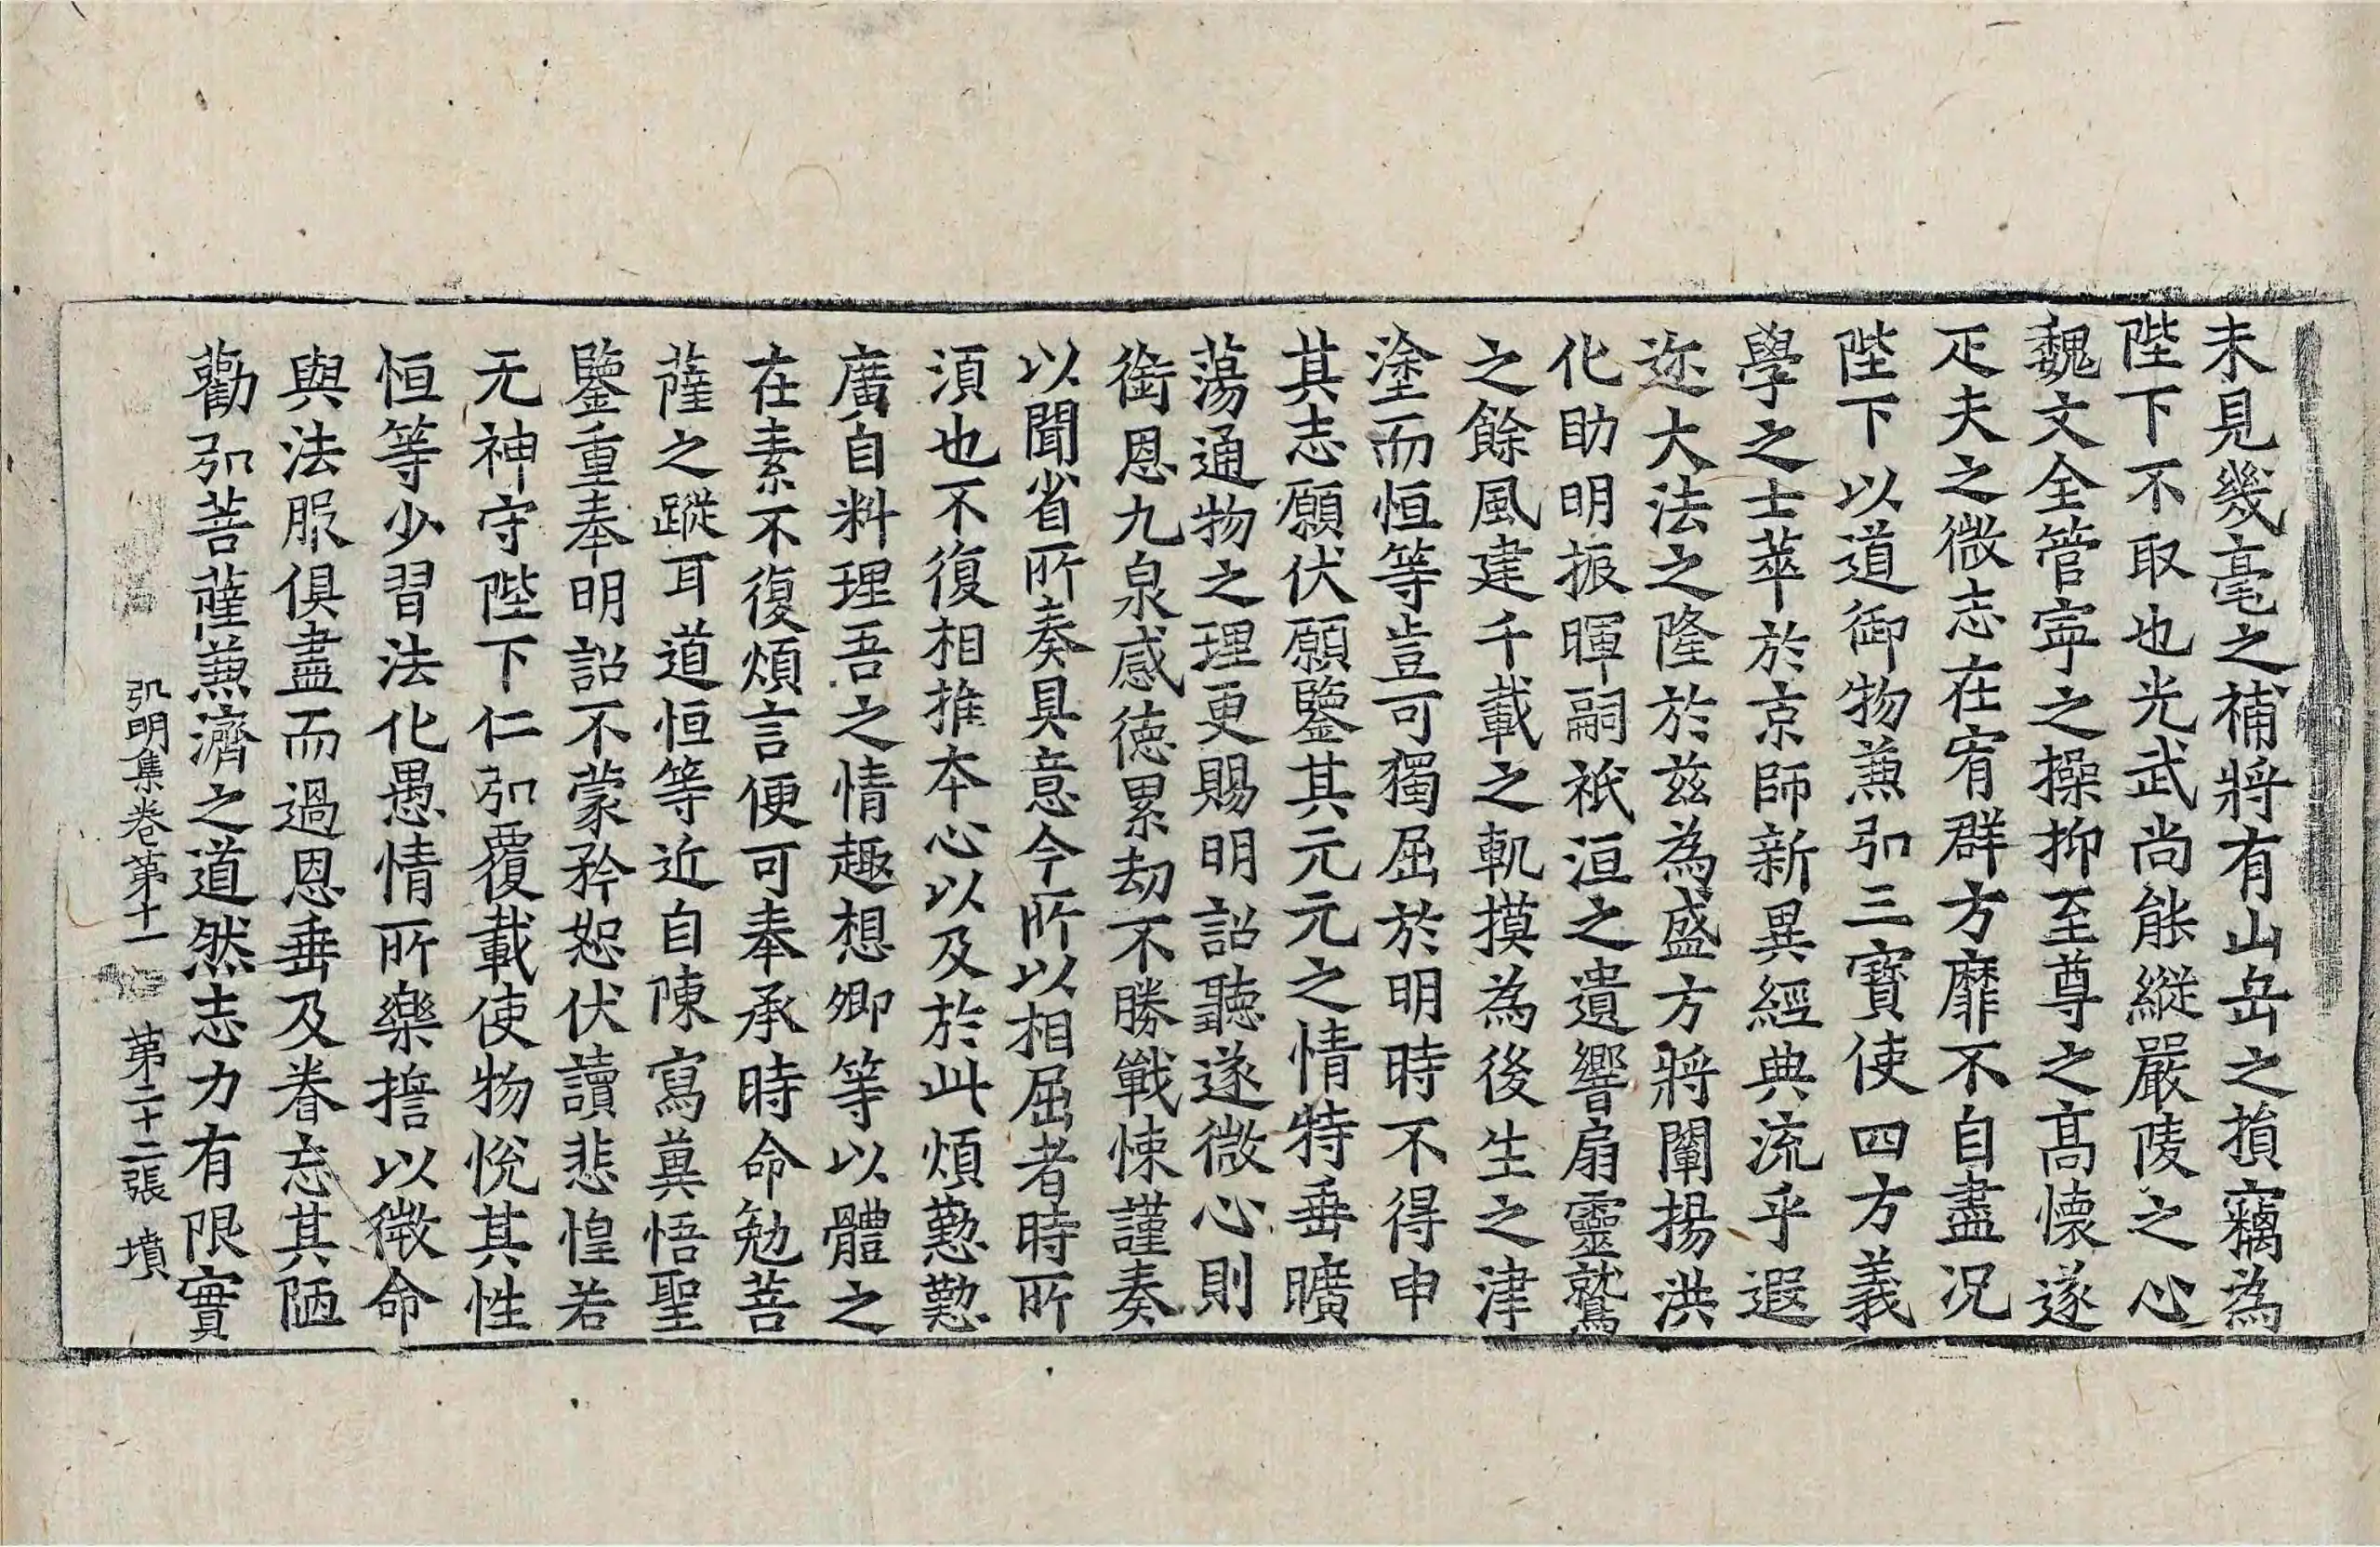 未見幾毫之補將有山岳之損竊為
陛下不取也光武尚能縱嚴陵之心
魏文全管寧之操抑至尊之高懷遂
疋夫之微志在宥群方靡不自盡况
陛下以道御物兼弘三寶使四方義
學之士萃於京師新異經典流乎遐
迩大法之隆於兹為盛方將闡揚洪
化助明振暉嗣祇洹之遺響扇靈鷲
之餘風建千載之軌摸為後生之津
塗而恒等豈可獨屈於明時不得申
其志願伏願鑒其元元之情特垂曠
蕩通物之理更賜明詔聽遂微心則
銜恩九泉感德累劫不勝戰悚謹奏
以聞省所奏具意今所以相屈者時所
須也不復相推本心以及於此煩懃懃
廣自料理吾之情趣想卿等以體之
在素不復煩言便可奉承時命勉菩
薩之蹤耳道恒等近自陳寫冀悟聖
鑒重奉明詔不蒙矜恕伏讀悲惶若
无神守陛下仁弘覆載使物悅其性
恒等少習法化愚情所樂誓以微命
與法服俱盡而過恩垂及眷忘其陋
勸弘菩薩兼濟之道然志力有限實
弘明集卷第十一 第二十二張 墳